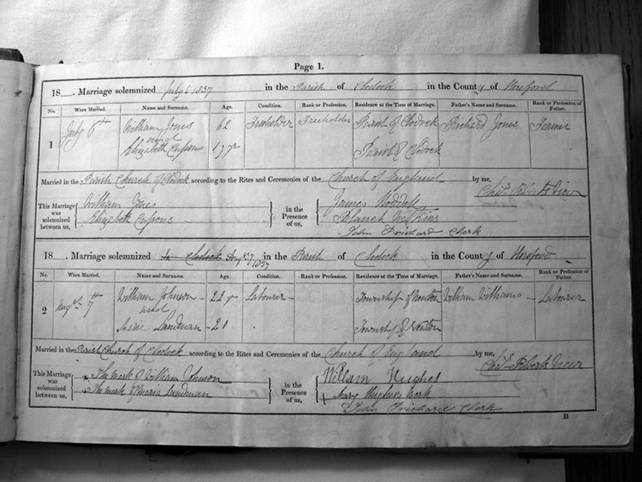 Page 1.
18 . Marriage solemnized July 6 1837 in the Parish of Clodock in the County of Hereford
No. When Married. Name and Surname. Age. Condition. Rank or Profession. Residence at the Time of Marriage. Father's Name and Surname. Rank or Profession of Father.
1 July 6th William Jones 62 Freeholder Parish of Clodock Richard Jones Farmer
and
Elizabeth Parish of Clodock
Married in the Parish Church of Clodock according to the Rites and Ceremonies of the Church of England by me,
This Marriage was solemnized between us, William in the Presence of us, James
Elizabeth Blanch
John Prichard Clerk
18 . Marriage solemnized in Clodock 1837 in the Parish of Clodock in the County of Hereford
No. When Married. Name and Surname. Age. Condition. Rank or Profession. Residence at the Time of Marriage. Father's Name and Surname. Rank or Profession of Father.
2 William Johnson 22 Labourer Township of Newton William Williams Labourer
and
Landman 21 Township of Newton
Married in the Parish Church of Clodock according to the Rites and Ceremonies of the Church of England by me,
This Marriage was solemnized between us, The mark of William Johnson in the Presence of us, William Hughes
The mark of Landman Mary Hughes mark
John Prichard Clerk
B